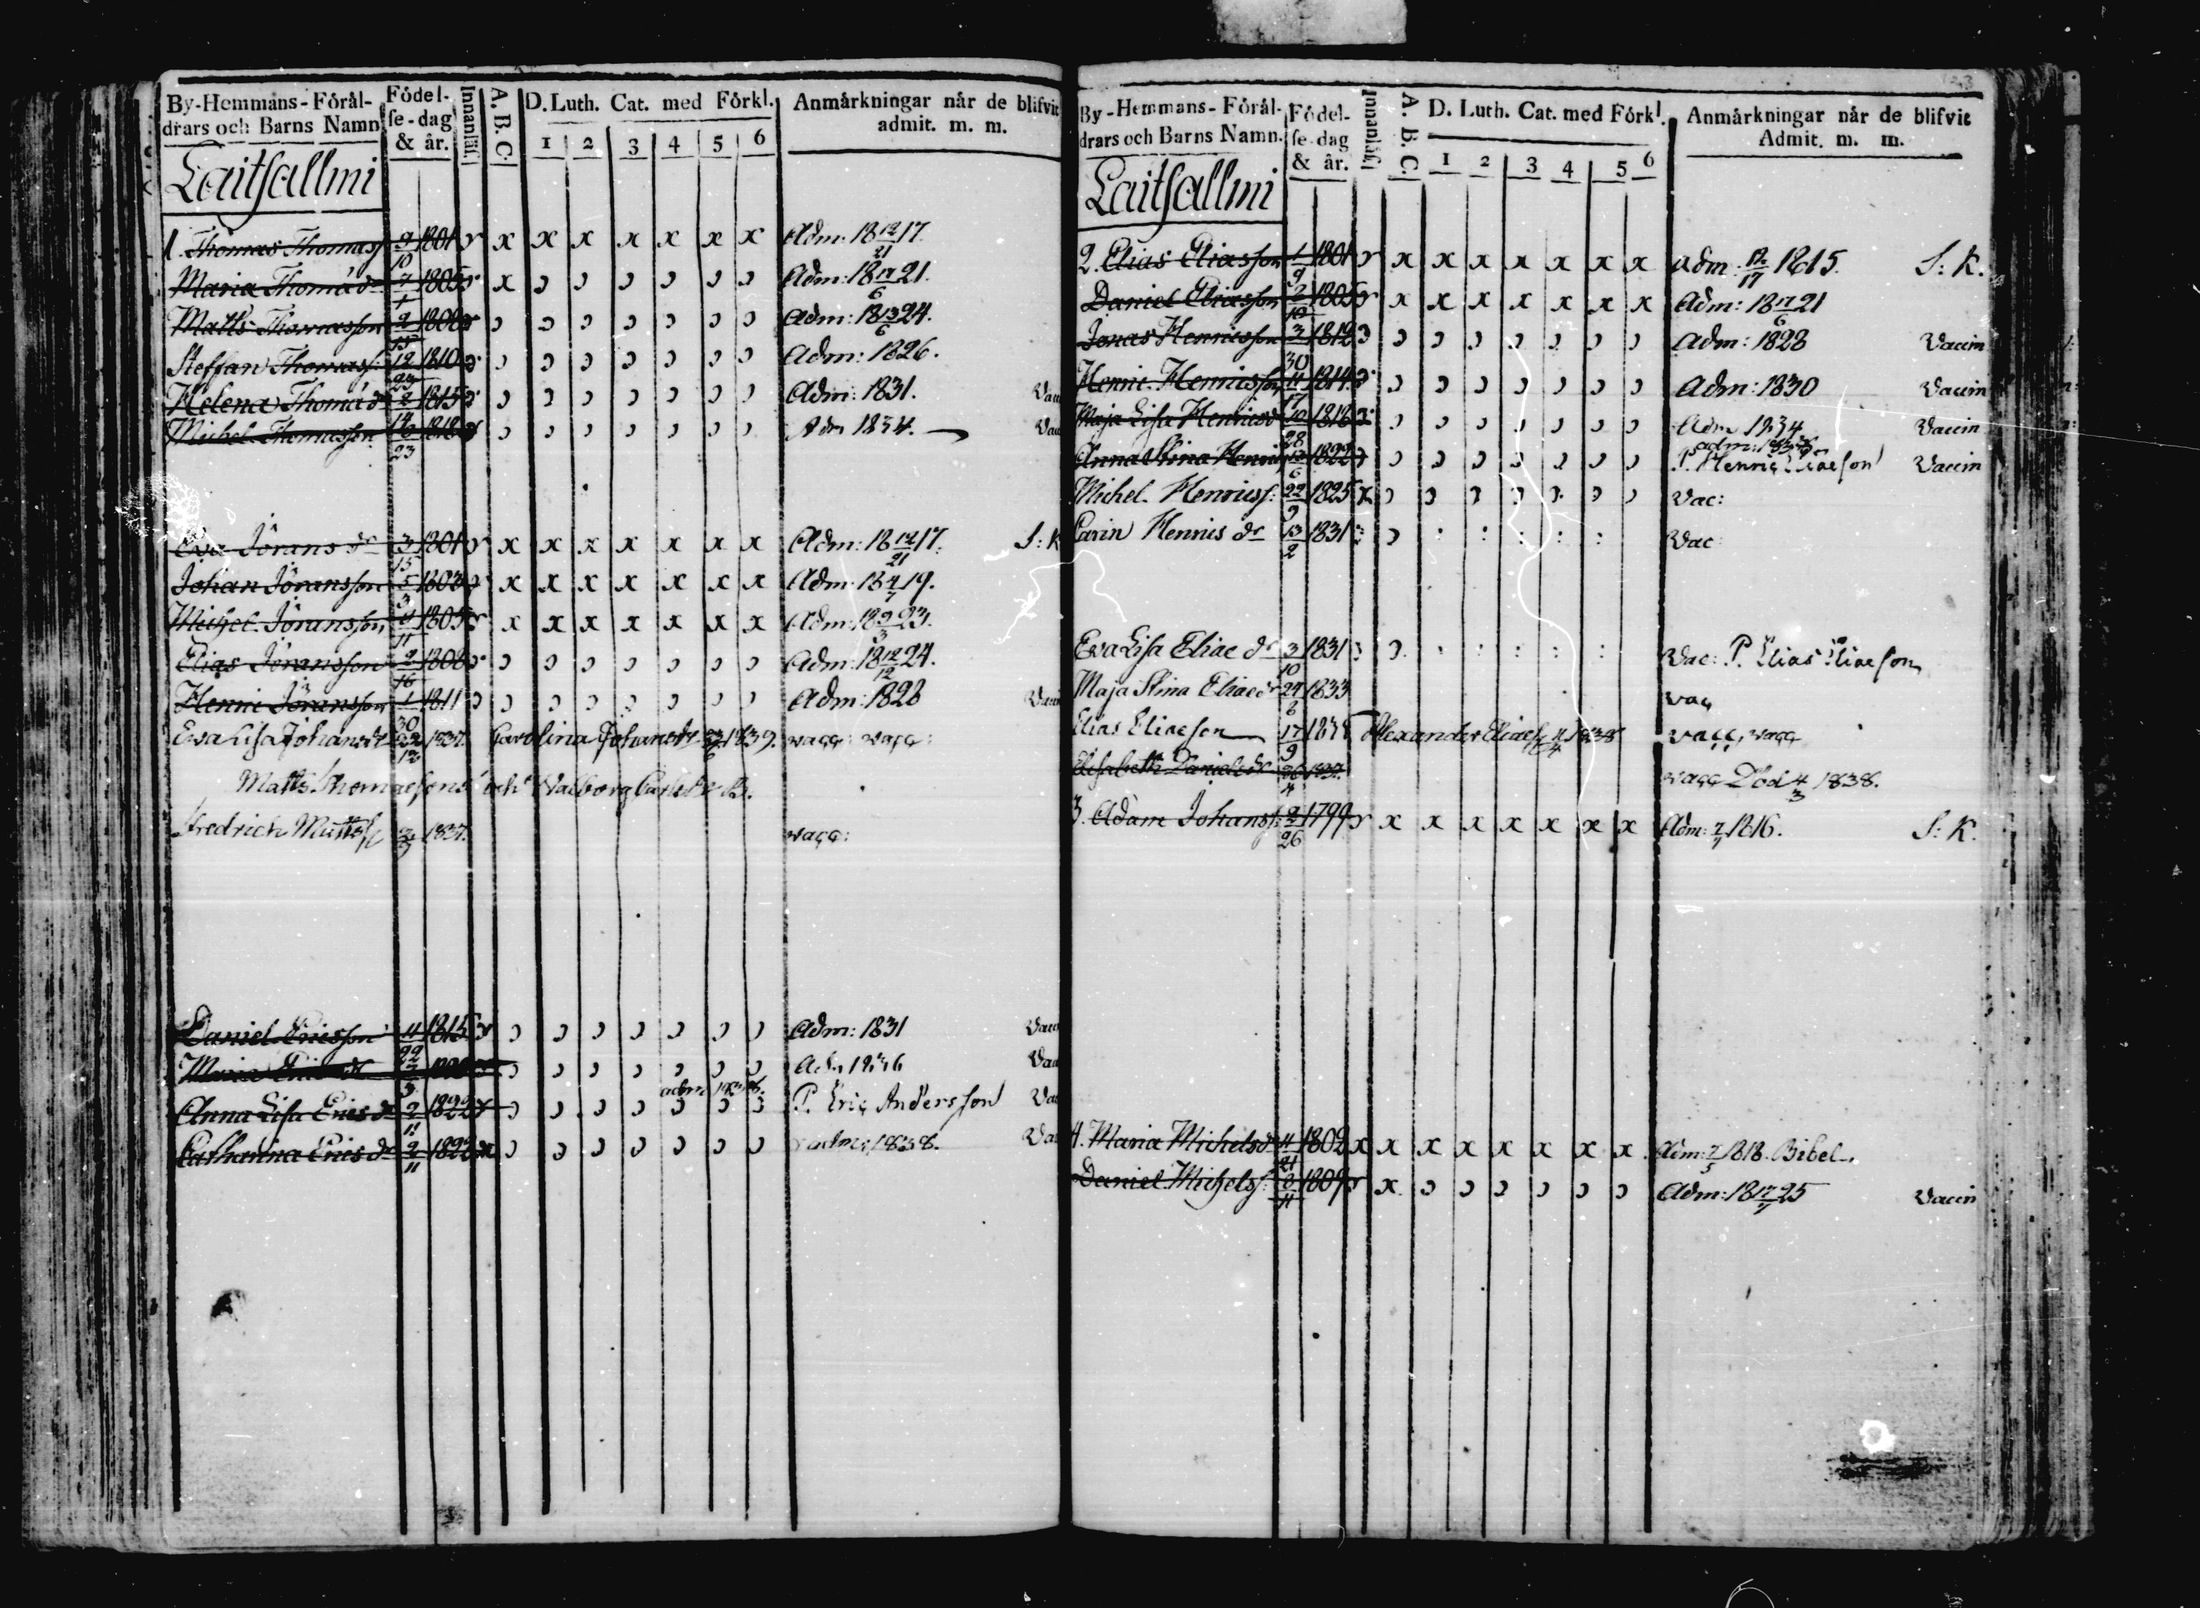 By-Hemmans-Förål-
drars och Barns Namn
Födel-
se-dag
& år.
Innanläs.
A. B. C.
D. Luth. Cat. med Förkl.
1 2 3 4 5 6
Anmårkningar når de blifvit
admit. m. m.
Laitsallmi
1. Thomas Thomass 9/10 1801 x x x x x x x Adm: 18 12/21 17.
Maria Thomæ dr 7/1 1805 x Adm: 18 17/6 21.
Matts Thomasson 2/15 1808 Adm: 18 13/6 24.
Steffan Thomass: 12/23 1810 Adm: 1826.
Helena Thomæ dr 1815 Adm: 1831.
Michel Thomasson 1818 Adm 1834.
Eva Jörans dr 3/15 1801 x x x x x x x Adm: 18 12/21 17. S: K
Johan Jöransson 5/3 1803 x x x x x x x Adm: 18 4/7 19.
Michel Jöransson 9/11 1805 x x x x x x x Adm: 18 2/3 23.
Elias Jöransson 2/16 1808 Adm: 18 12/12 24.
Henric Jöransson 1/30 1811 Adm: 1828
Eva Lisa Johansdr 22/12 1837. Carolina Johansdr 1839. vacc: vacc:
Matts Thomaesons och Walborg Carlsdr B.
Fredrich Mattss 1837. vacc:
Daniel Ericsson 11/22 1815 Adm: 1831
Maria Erics dr Adm 1836
Anna Lisa Erics dr 2/11 1822 adm: 1838. P. Eric Andersson
Catharina Erics dr 2/11 1822 adm: 1838.
By-Hemmans-Förål-
drars och Barns Namn.
Födel-
se-dag
& år.
Innanläs.
A. B. C.
D. Luth. Cat. med Förkl.
1 2 3 4 5 6
Anmårkningar når de blifvit
Admit. m. m.
Laitsallmi
2. Elias Eliasson 1/9 1801 x x x x x x x Adm: 12/17 1815. S: K.
Daniel Eliasson 2/10 1805 x x x x x x x Adm: 18 17/6 21
Jonas Henricsson 3/30 1812 Adm: 1828 Vaccin
Henric Henricsson 11/17 1814 Adm: 1830 Vaccin
Maja Lisa Henricsdr 10/28 1818 Adm 1834 Vaccin
Anna Stina Henricsdr 1822 adm: 1838 P. Henric Eliaeson Vaccin
Michel Henricss: 22/9 1825 Vac:
Carin Henrics dr 13/2 1831 Vac
Eva Lisa Eliae dr 3/10 1831 Vac: P. Elias Eliaeson
Maja Stina Eliae dr 24/6 1833 vac
Elias Eliaeson 17/9 1835 Alexander Eliaes 11/4 1838 vacc, vacc
Elisabeth Daniels dr 26/4 1837. vacc Död 4/3 1838.
3. Adam Johanss: 2/26 1799 x x x x x x x Adm: 7/7 1816. S: K.
4. Maria Michelsdr 11/21 1802 x x x x x x x x Adm: 7/5 1818. Bibel.
Daniel Michelss: 8/11 1809 x Adm: 18 17/7 25 Vaccin